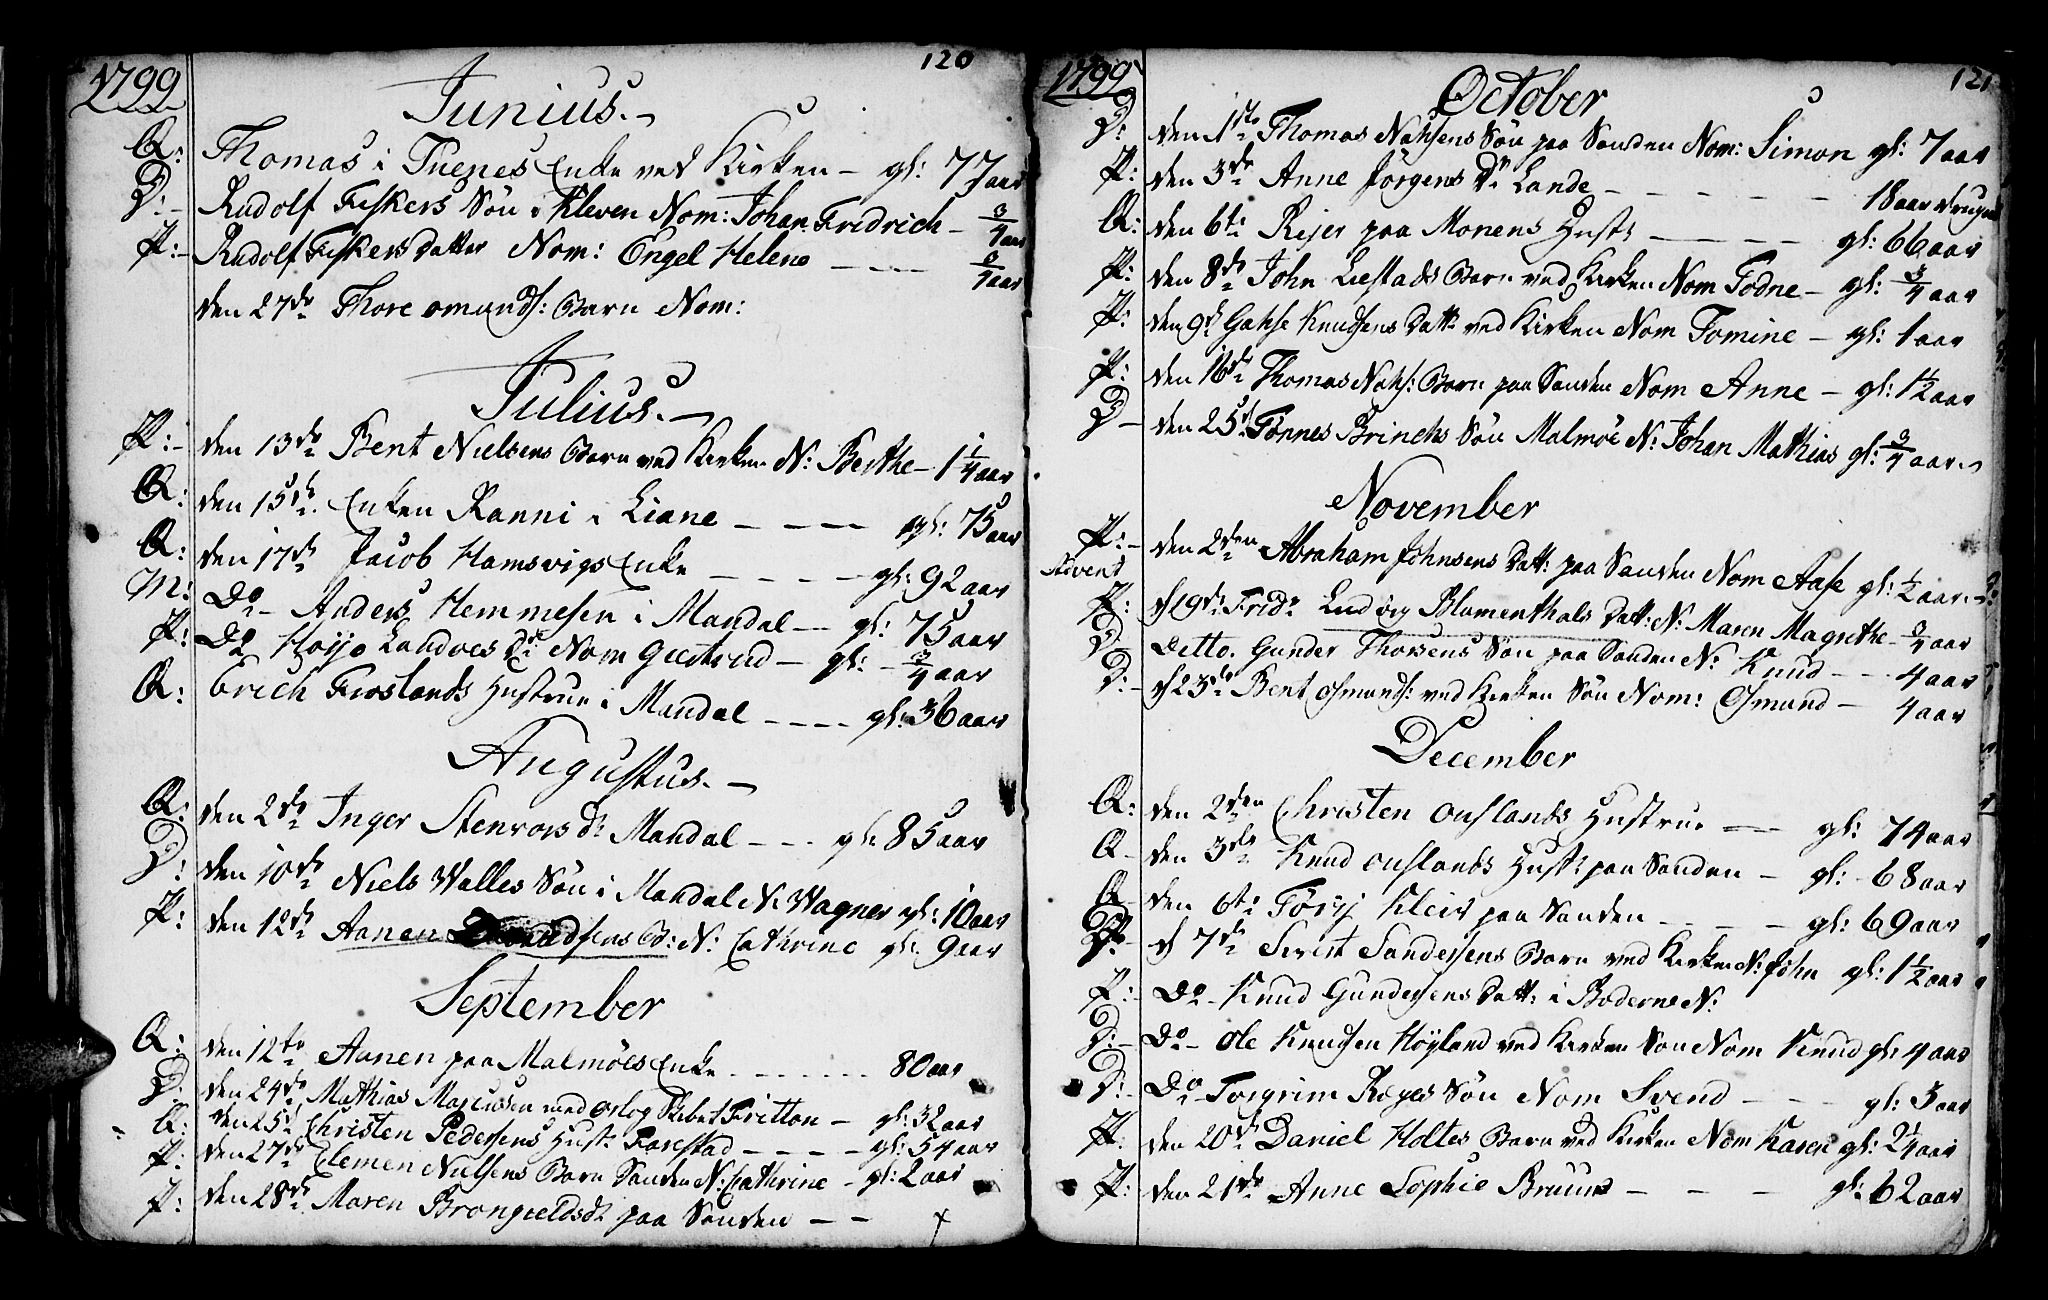 1799 120
Junius.
Q: Thomas i Tuenes Enke ved Kirken – gl: 77 aar
D: Rudolf Fiskers Søn i Kleven Nom: Johan Fridrich – 3/4 aar
P: Rudolf Fiskers Datter Nom: Engel Helene – – – 3/4 aar
den 27de Thore omunds: Barn Nom:
Julius.
P: den 13de Bent Nielsens Barn ved Kirken N: Berthe – 1 1/4 aar
Q: den 15de Enken Ranni i Liane – – – gl: 75 aar
Q: den 17de Jacob Hamsvigs Enke – – – – gl: 92 aar
M: Do – Anders Hemmesen i Mandal – gl: 75 aar
P: Do Landoes Dr Nom – gl: 3/4 aar
Q: Erich Froslands Hustrue i Mandal – – – – gl: 36 aar
Augustus.
Q: den 2de Inger Stenrors dr Mandal – – – gl: 85 aar
D: den 10de Niels Walles Søn i Mandal N: Wagner gl: 10 aar
P: den 12de Aanen B: N: Cathrine gl: 9 aar
September
Q: den 12te Aanen paa Malmøes Enke – – – – 80 aar
D: den 24de Mathias Marcussen med Fritton – gl: 32 aar
Q: den 25de Christen Pedersens Hust: Farestad – – – – gl: 54 aar
P: den 27de Clemen Nielsens Barn Sanden N: Cathrine – gl: 2 aar
P: den 28de Maren paa Sanden – –
1799 121
October
D: den 1ste Thomas Søn paa Sanden Nom: Simon gl: 7 aar
P: den 3de Anne Jørgens Dr Lande – – – – 18 aar
Q: den 6te Rejer paa Monens Hustr – – – – gl: 66 aar
P: den 8de John Liestads Barn ved Kirken Nom Todne – gl: 3/4 aar
P: den 9de Knudsens Datt: ved Kirken Nom Tomine – gl: 1 aar
P: den 16de Thomas Barn paa Sanden Nom Anne – gl: 1 1/2 aar
D – den 25de Tønnes Brinchs Søn Malmøe N: Johan Mathias gl: 3/4 aar.
November
P: – den 2den Abraham Johnsens Datt: paa Sanden Nom Aase gl: 1/2 aar.
Advent
P: d 19de Fridr Ludvig Blomenthals Datt: N: Maren Magrethe – 3/4 aar
D: Detto. Gunder Thorsens Søn paa Sanden N: Knud – – 4 aar
D: – d 23de Bent Osmunds: ved Kirken Søn Nom: Osmund – 4 aar
December
Q: den 2den Christen Ouslands Hustrue – – gl: 74 aar
Q – den 3de Knud Ouslands Hust: paa Sanden – gl: 68 aar
Q den 6te Kleis paa Sanden – – – – gl: 69 aar
d 7de Sivert Sandersens Barn ved Kirken N: John gl: 1 1/2 aar
P: – Do – Knud Gundersens Datt: i Boderne N:
D: – Do – Ole Knudsen Høyland ved Kirken Søn Nom Knud gl: 4 aar
D: – Do – Torgrim Røyes Søn Nom Svend – – – gl: 3 aar
P: den 20de Daniel Holtes Barn ved Kirken Nom Karen gl: 2 1/4 aar
P: den 21de Anne Sophie Bruuns – – – gl: 62 aar